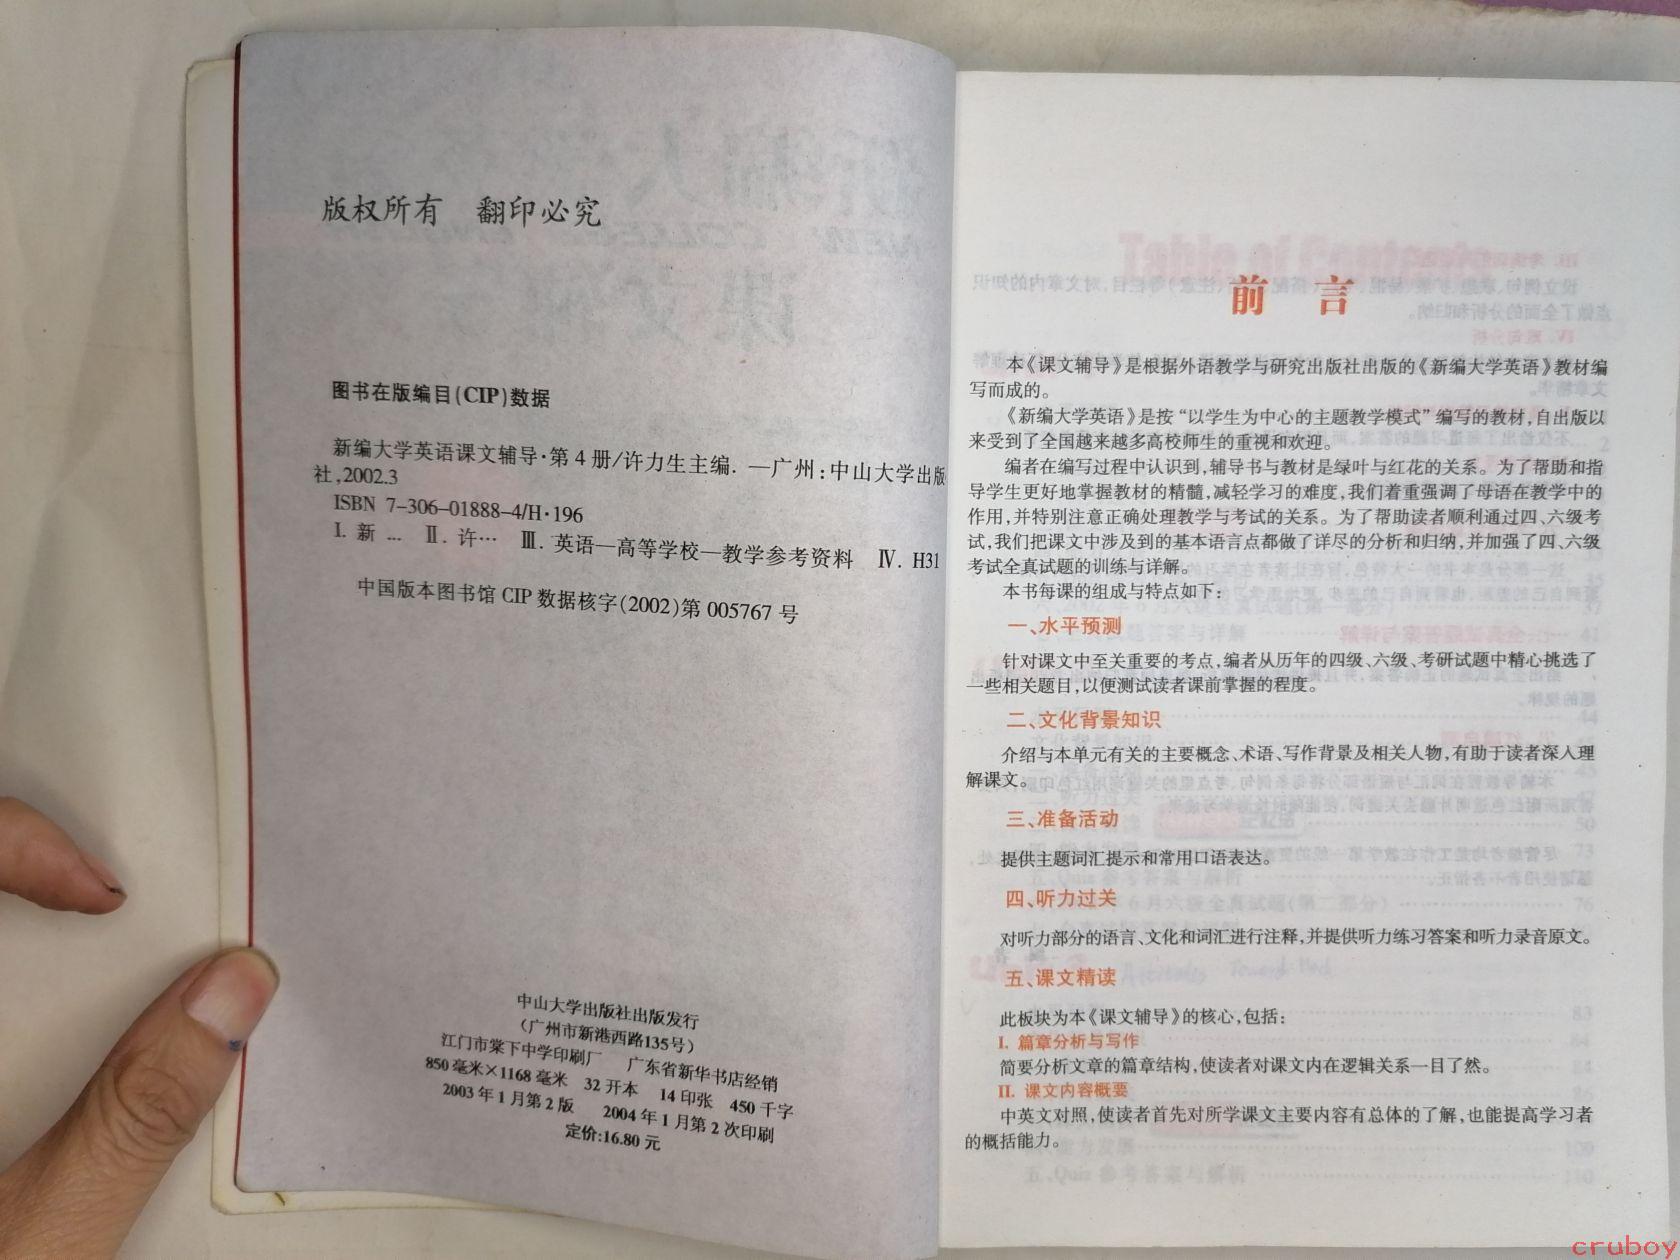 版权所有 翻印必究
图书在版编目(CIP)数据
新编大学英语课文辅导·第4册/许力生主编. —广州:中山大学出版
社,2002.3
ISBN 7-306-01888-4/H·196
Ⅰ. 新 … Ⅱ. 许… Ⅲ. 英语—高等学校—教学参考资料 Ⅳ. H31
中国版本图书馆 CIP 数据核字(2002)第 005767 号
中山大学出版社出版发行
(广州市新港西路135号)
江门市棠下中学印刷厂 广东省新华书店经销
850毫米×1168毫米 32开本 14印张 450千字
2003年1月第2版 2004年1月第2次印刷
定价:16.80元
前 言
本《课文辅导》是根据外语教学与研究出版社出版的《新编大学英语》教材编
写而成的。
《新编大学英语》是按“以学生为中心的主题教学模式”编写的教材,自出版以
来受到了全国越来越多高校师生的重视和欢迎。
编者在编写过程中认识到,辅导书与教材是绿叶与红花的关系。为了帮助和指
导学生更好地掌握教材的精髓,减轻学习的难度,我们着重强调了母语在教学中的
作用,并特别注意正确处理教学与考试的关系。为了帮助读者顺利通过四、六级考
试,我们把课文中涉及到的基本语言点都做了详尽的分析和归纳,并加强了四、六级
考试全真试题的训练与详解。
本书每课的组成与特点如下:
一、水平预测
针对课文中至关重要的考点,编者从历年的四级、六级、考研试题中精心挑选了
一些相关题目,以便测试读者课前掌握的程度。
二、文化背景知识
介绍与本单元有关的主要概念、术语、写作背景及相关人物,有助于读者深入理
解课文。
三、准备活动
提供主题词汇提示和常用口语表达。
四、听力过关
对听力部分的语言、文化和词汇进行注释,并提供听力练习答案和听力录音原文。
五、课文精读
此板块为本《课文辅导》的核心,包括:
I. 篇章分析与写作
简要分析文章的篇章结构,使读者对课文内在逻辑关系一目了然。
II. 课文内容概要
中英文对照,使读者首先对所学课文主要内容有总体的了解,也能提高学习者
的概括能力。
cruboy